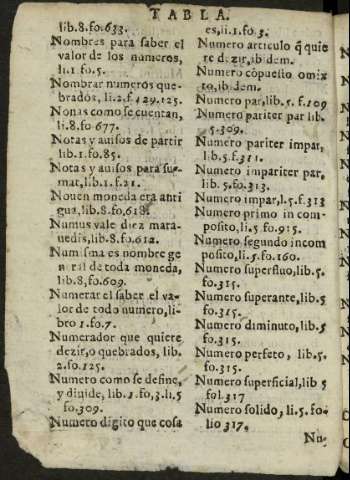 TABLA.
lib.8.fo.633.
Nombres para saber el
valor de los numeros,
li.1.fo.5.
Nombrar numeros que-
brados, li.2.f.129.125.
Nonas como se cuentan,
li.8.fo.677.
Notas y auisos de partir
lib.1.fo.85.
Notas y auisos para su-
mar, lib.1.f.21.
Nouen moneda era anti
gua, lib.8.fo.618.
Numus vale diez mara-
uedis, lib.8.fo.612.
Numisma es nombre ge
neral de toda moneda,
lib.8.fo.609.
Numerar el saber el va-
lor de todo numero, li-
bro 1.fo.7.
Numerador que quiere
dezir, o quebrados, lib.
2.fo.125.
Numero como se define,
y diuide, lib.1.fo.3.li.5
fo.309.
Numero digito que cosa
es, li.1.fo.3.
Numero articulo q̃ quie
re dezir, ibidem.
Numero cõpuesto o mix
to, ibidem.
Numero par, lib.5.f.309
Numero pariter par lib.
5.309.
Numero pariter impar,
lib.5.f.311.
Numero impariter par,
lib.5.fo.313.
Numero impar, l.5.f.313
Numero primo in com-
posito, li.5.fo.915.
Numero segundo incom
posito, li.5.fo.160.
Numero superfluo, lib.5.
fo.315.
Numero superante, lib.5
fo.315.
Numero diminuto, lib.5
fo.315.
Numero perfeto, lib.5.
fo.315.
Numero superficial, lib 5
fol.317
Numero solido, li.5.fo-
lio 317.
Nu-